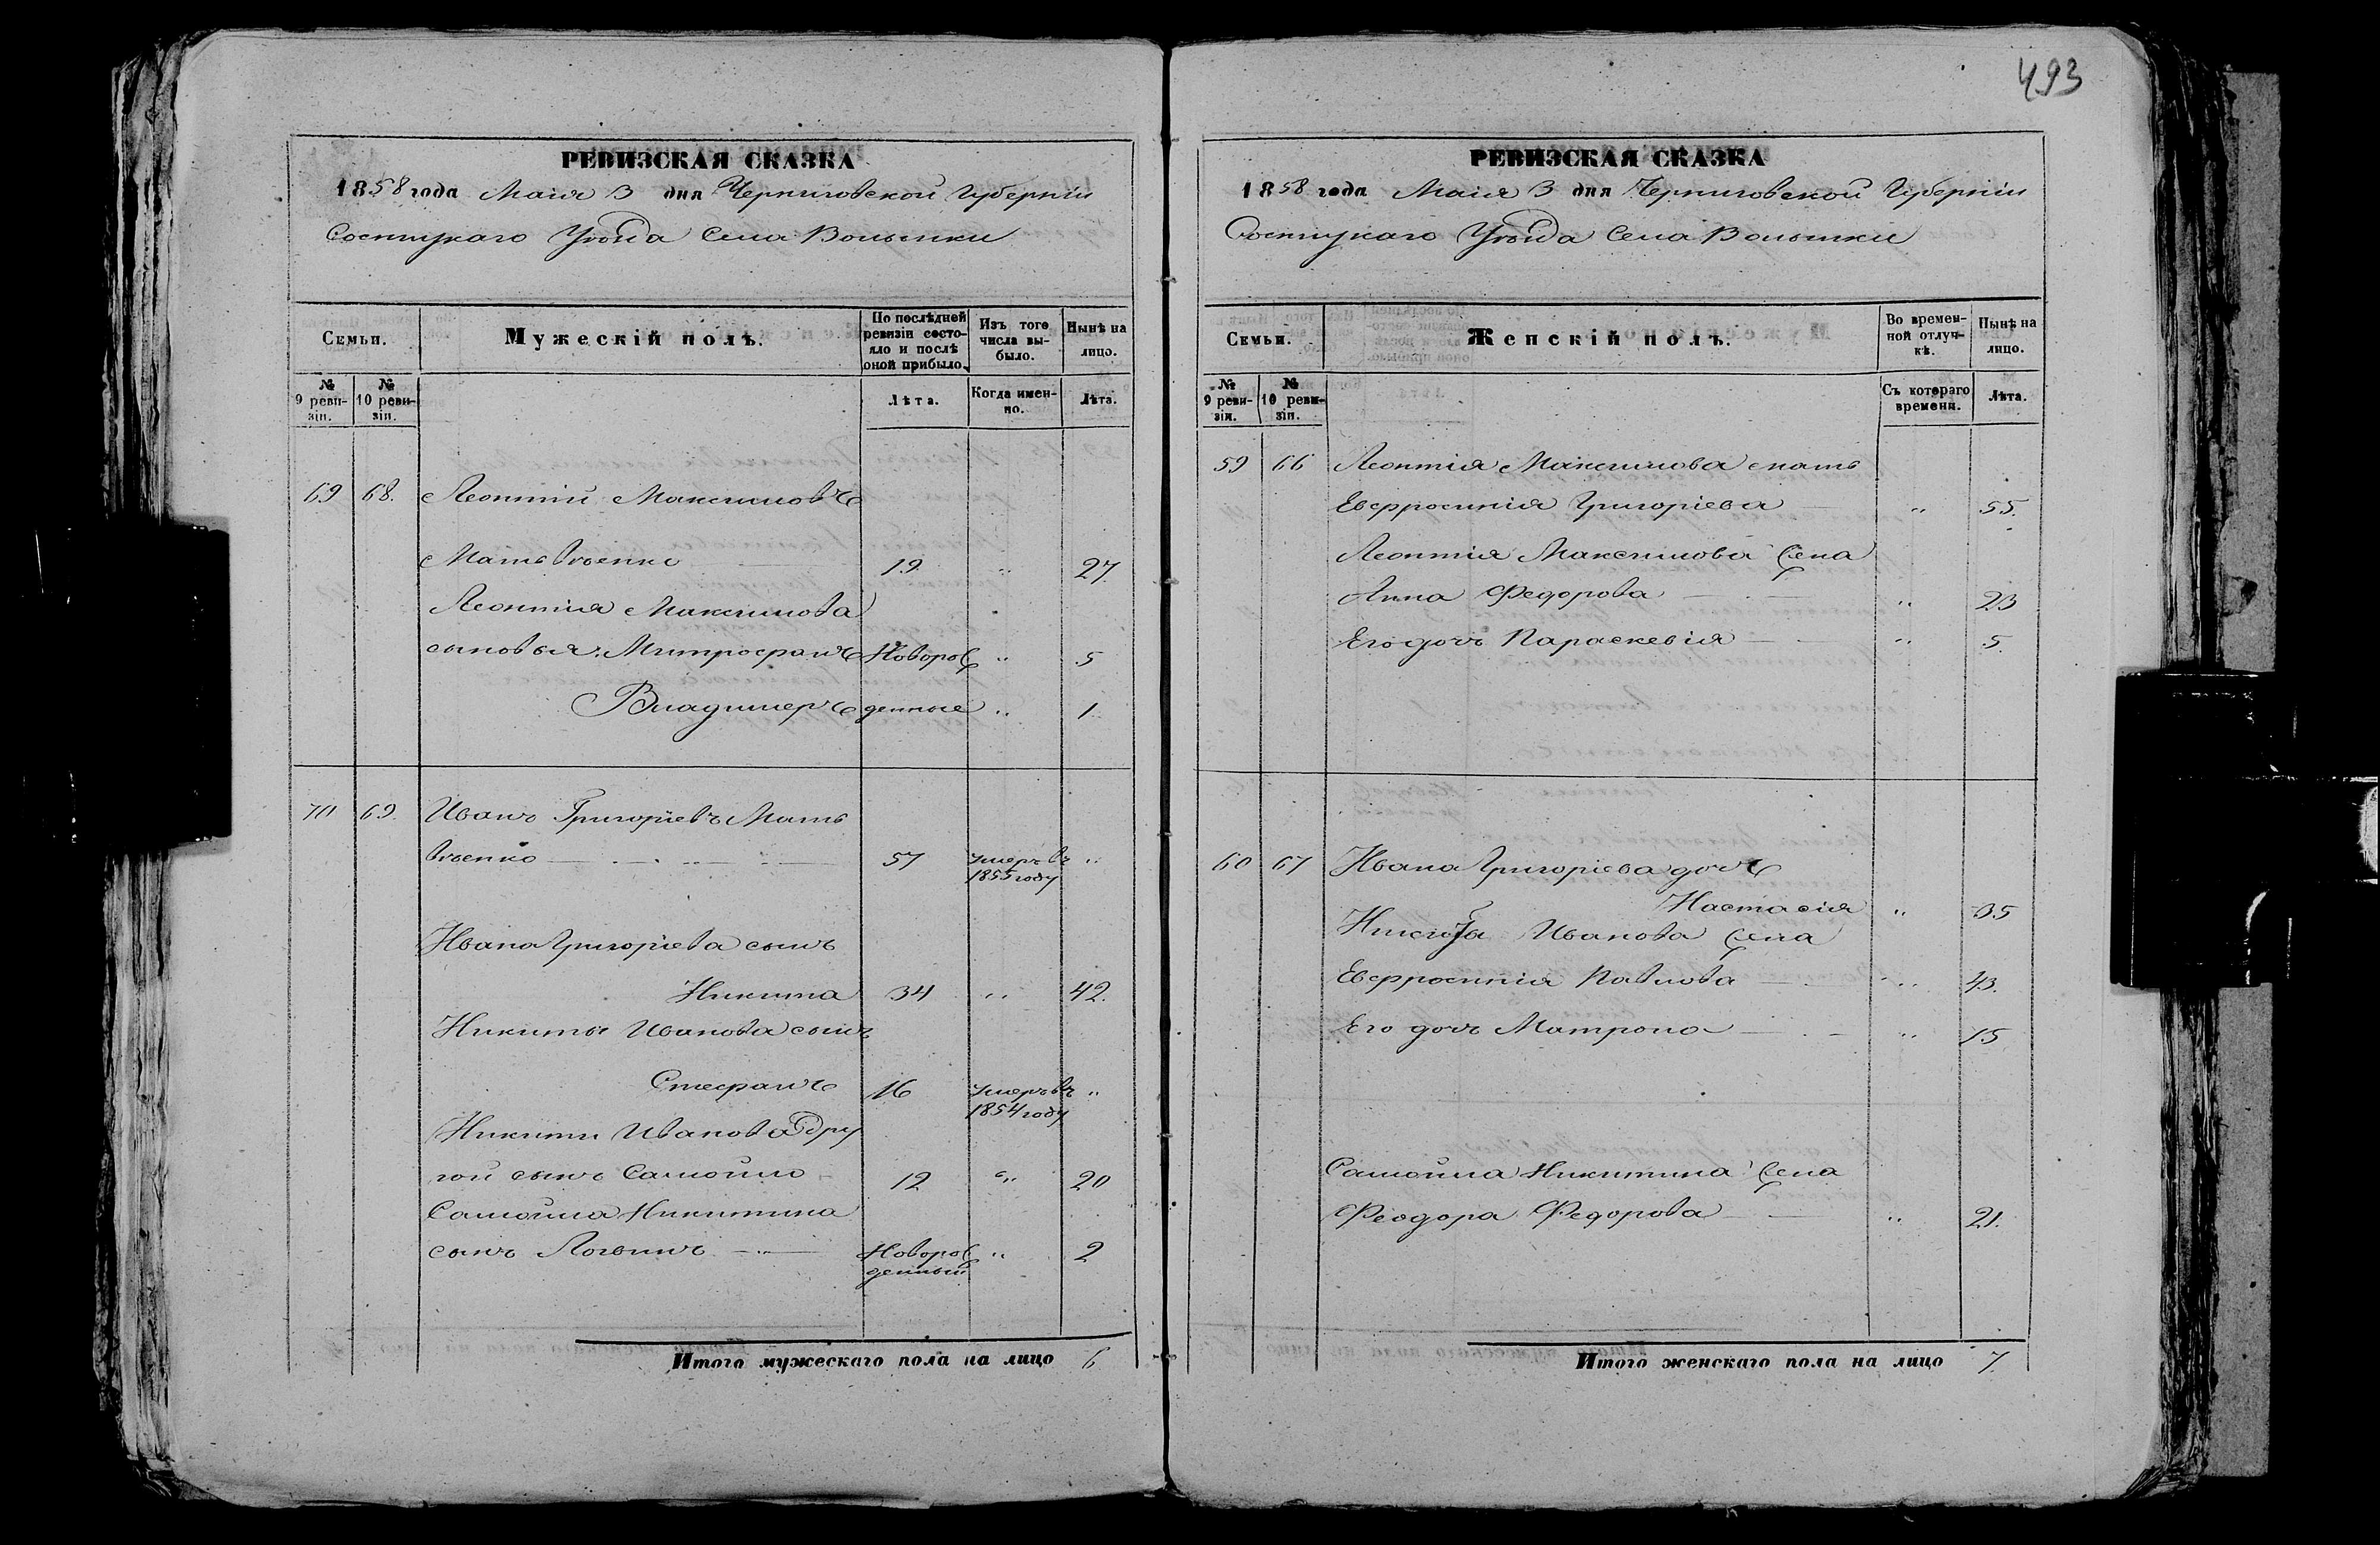 493
РЕВИЗСКАЯ СКАЗКА
1858 года Маія 3 дня Черниговской Губерніи
Сосницкаго Уѣзда Села Волынки
Семьи.
Мужескій полъ.
По послѣдней ревизіи состояло и послѣ оной прибыло.
Изъ того числа выбыло.
Нынѣ на лицо.
№ 9 ревизіи.
№ 10 ревизіи.
Лѣта.
Когда именно.
Лѣта.
69 68. Леонтій Максимовъ
Матвѣенко 19 „ 27
Леонтія Максимова
сыновья: Митрофанъ Новорож „ 5
Владимеръ денные „ 1
70 69. Иванъ Григоріевъ Мат
вѣенко 57 умеръ въ „
1855 году
Ивана Григоріева сынъ
Никита 34 „ 42.
Никиты Иванова сынъ
Стефанъ 16 умеръ въ „
1854 году
Никити Иванова дру
гой сынъ Самойло 12 „ 20
Самойла Никитина
сынъ Логвинъ Новорож „ 2
денный
Итого мужескаго пола на лицо 6
РЕВИЗСКАЯ СКАЗКА
1858 года Маія 3 дня Черниговской Губерніи
Сосницкаго Уѣзда Села Волынки
Семьи.
Женскій полъ.
Во временной отлучкѣ.
Нынѣ на лицо.
№ 9 ревизіи.
№ 10 ревизіи.
Съ котораго времени.
Лѣта.
59 66 Леонтія Максимова мать
Евфросинія Григоріева „ 55.
Леонтія Максимова жена
Анна Федорова „ 23
Его дочь Параскевія „ 5.
60 67 Ивана Григоріева дочь
Настасія „ 35
Никиты Иванова жена
Евфросинія Павлова „ 43.
Его дочь Матрона „ 15
Самойла Никитина жена
Феодора Федорова „ 21.
Итого женскаго пола на лицо 7